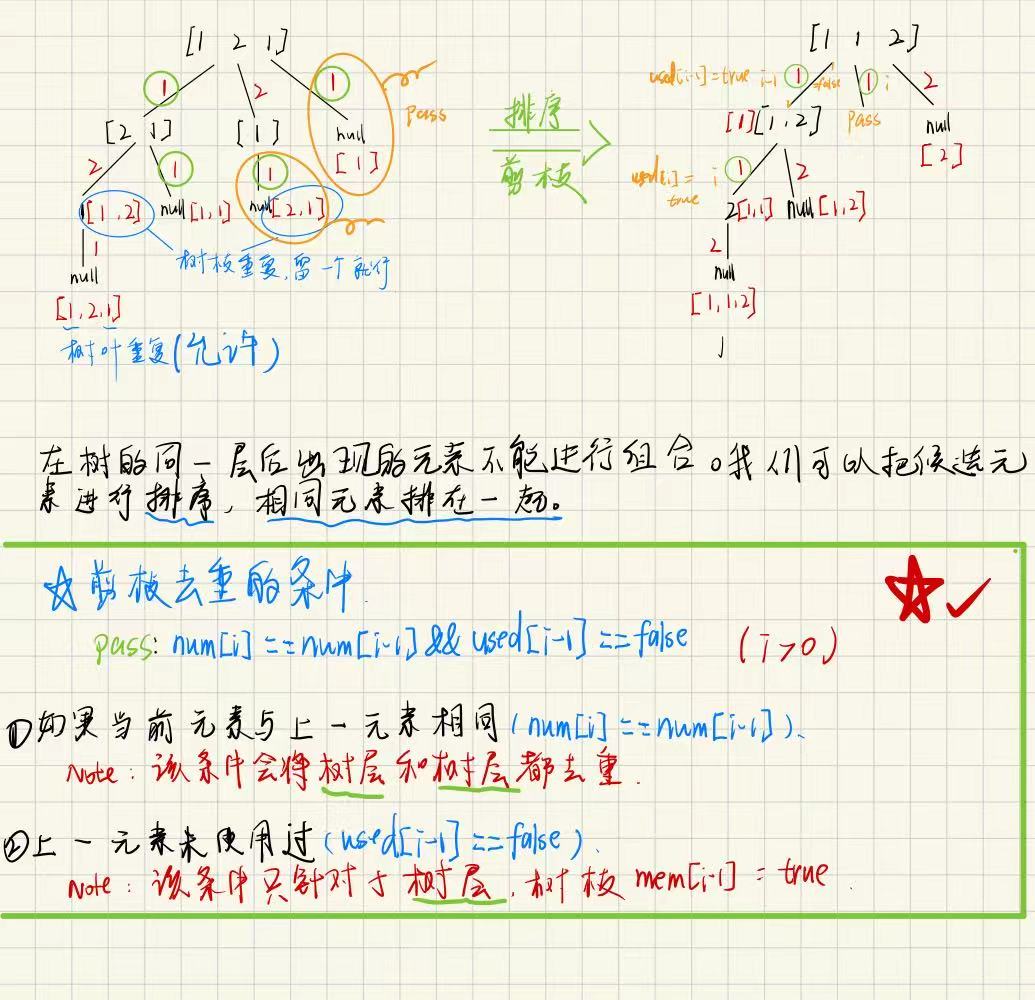 [1 2 1]
1 2 1
pass
[2 1] [1] null
[1]
2 1 1
[1,2] null [1,1] null [2,1]
1
树枝重复,留一个就行
null
[1,2,1]
树叶重复(允许)
排序
剪枝
[1 1 2]
used[i-1]=true i-1 1 =false 1 i 2
[1] [1,2] pass null
[2]
used[i]= i 1 2
true
2 [1,1] null [1,2]
2
null
[1,1,2]
在树的同一层后出现的元素不能进行组合。我们可以把候选元
素进行排序,相同元素排在一起。
☆剪枝去重的条件.
pass: num[i]==num[i-1] && used[i-1]==false (i>0)
①如果当前元素与上一元素相同(num[i]==num[i-1]).
Note: 该条件会将树层和树层都去重.
②上一元素未使用过(used[i-1]==false).
Note: 该条件只针对于树层,树枝 mem[i-1] = true.